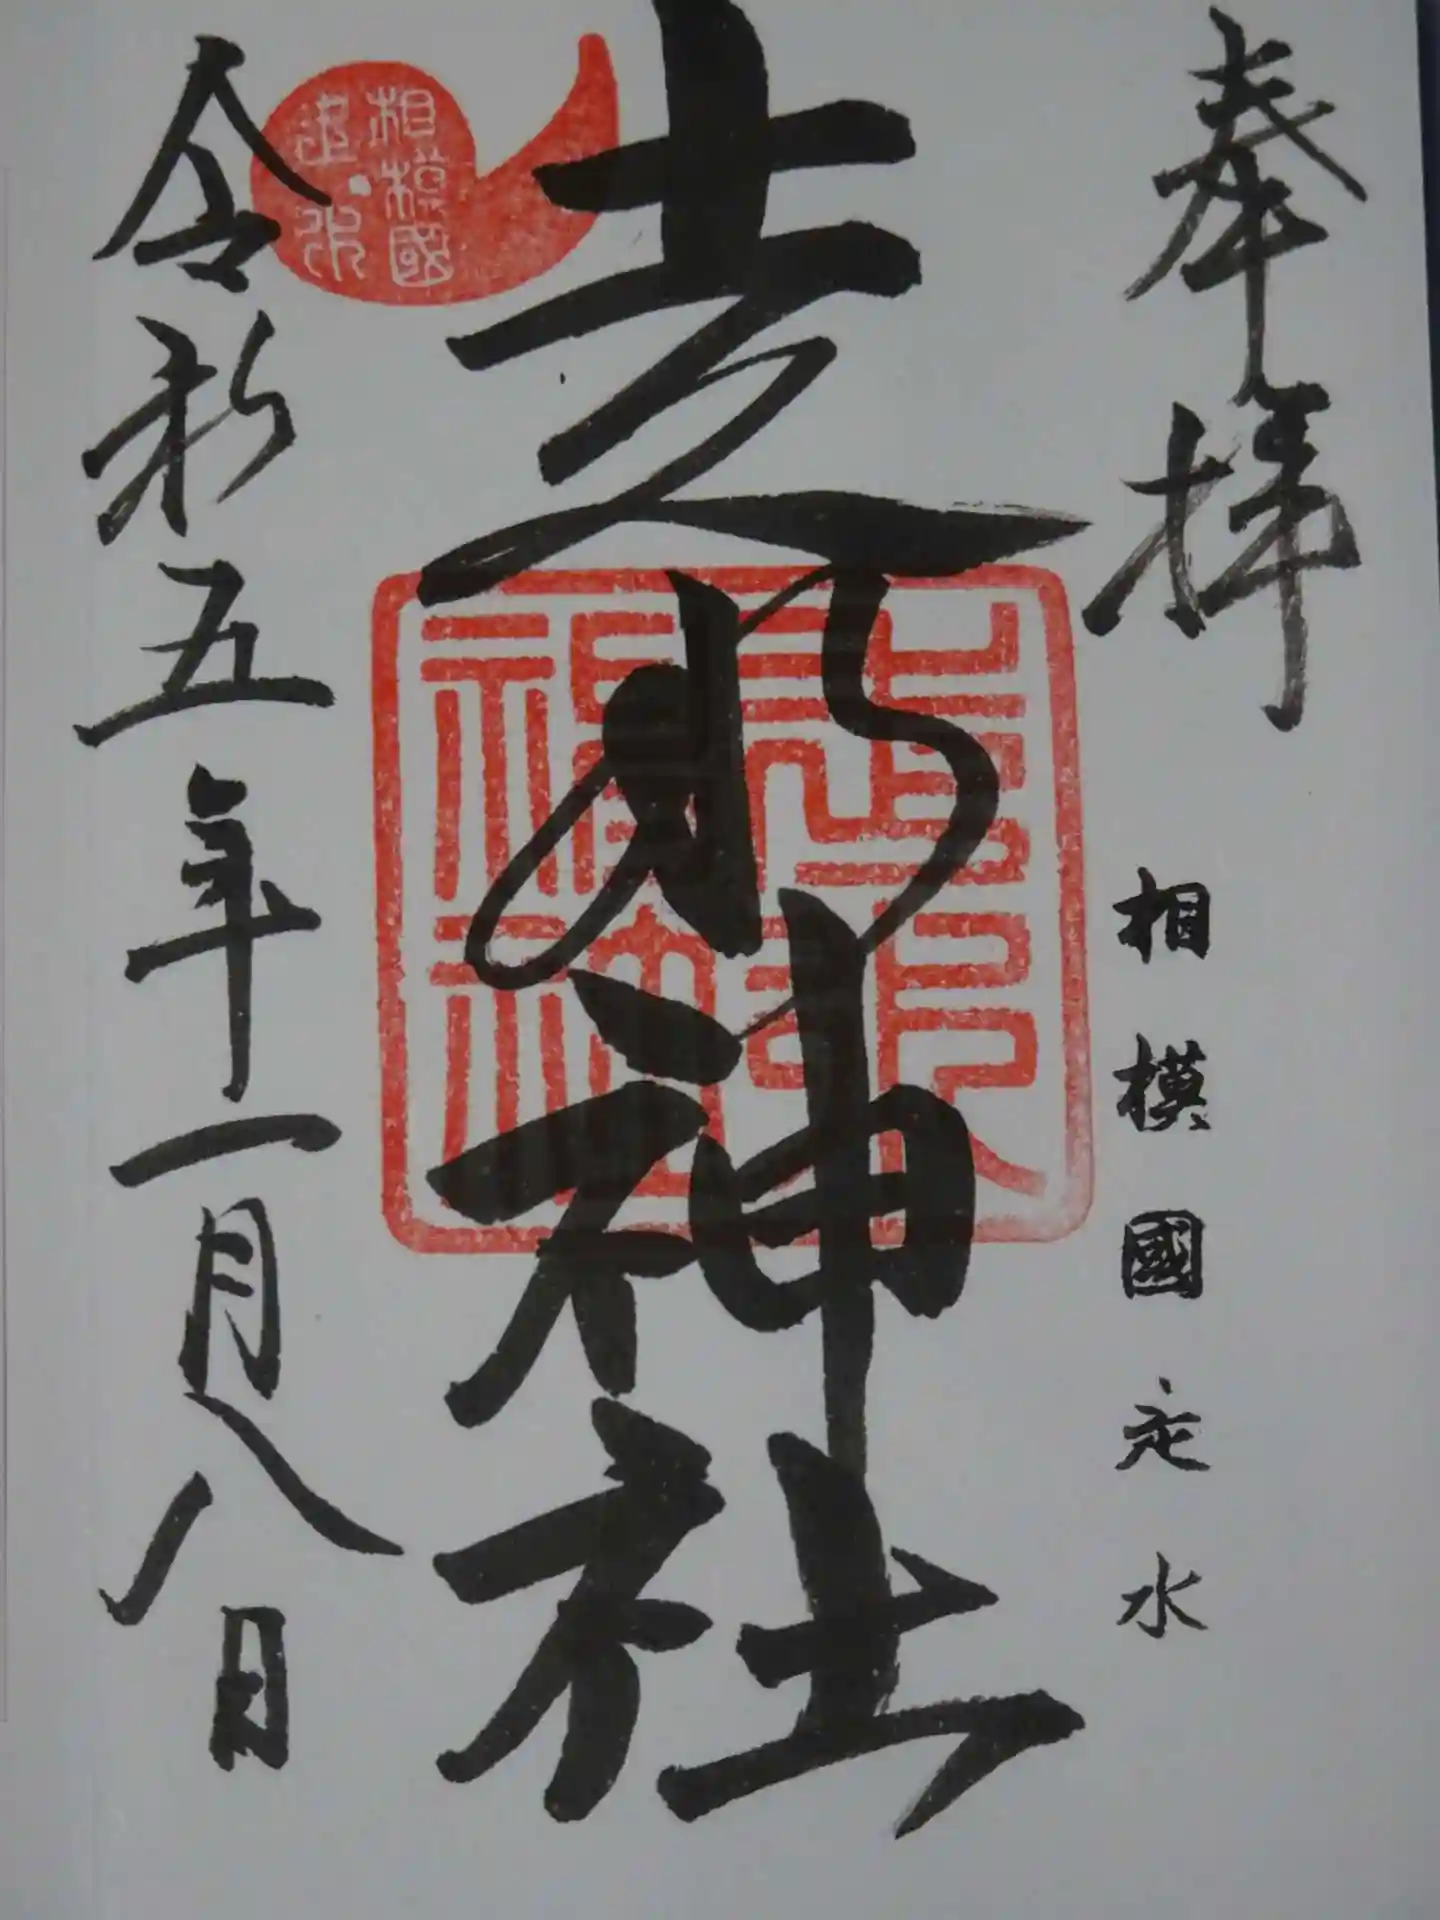 奉拝
相模國走水
走水神社
相模國
走水
令和五年一月八日